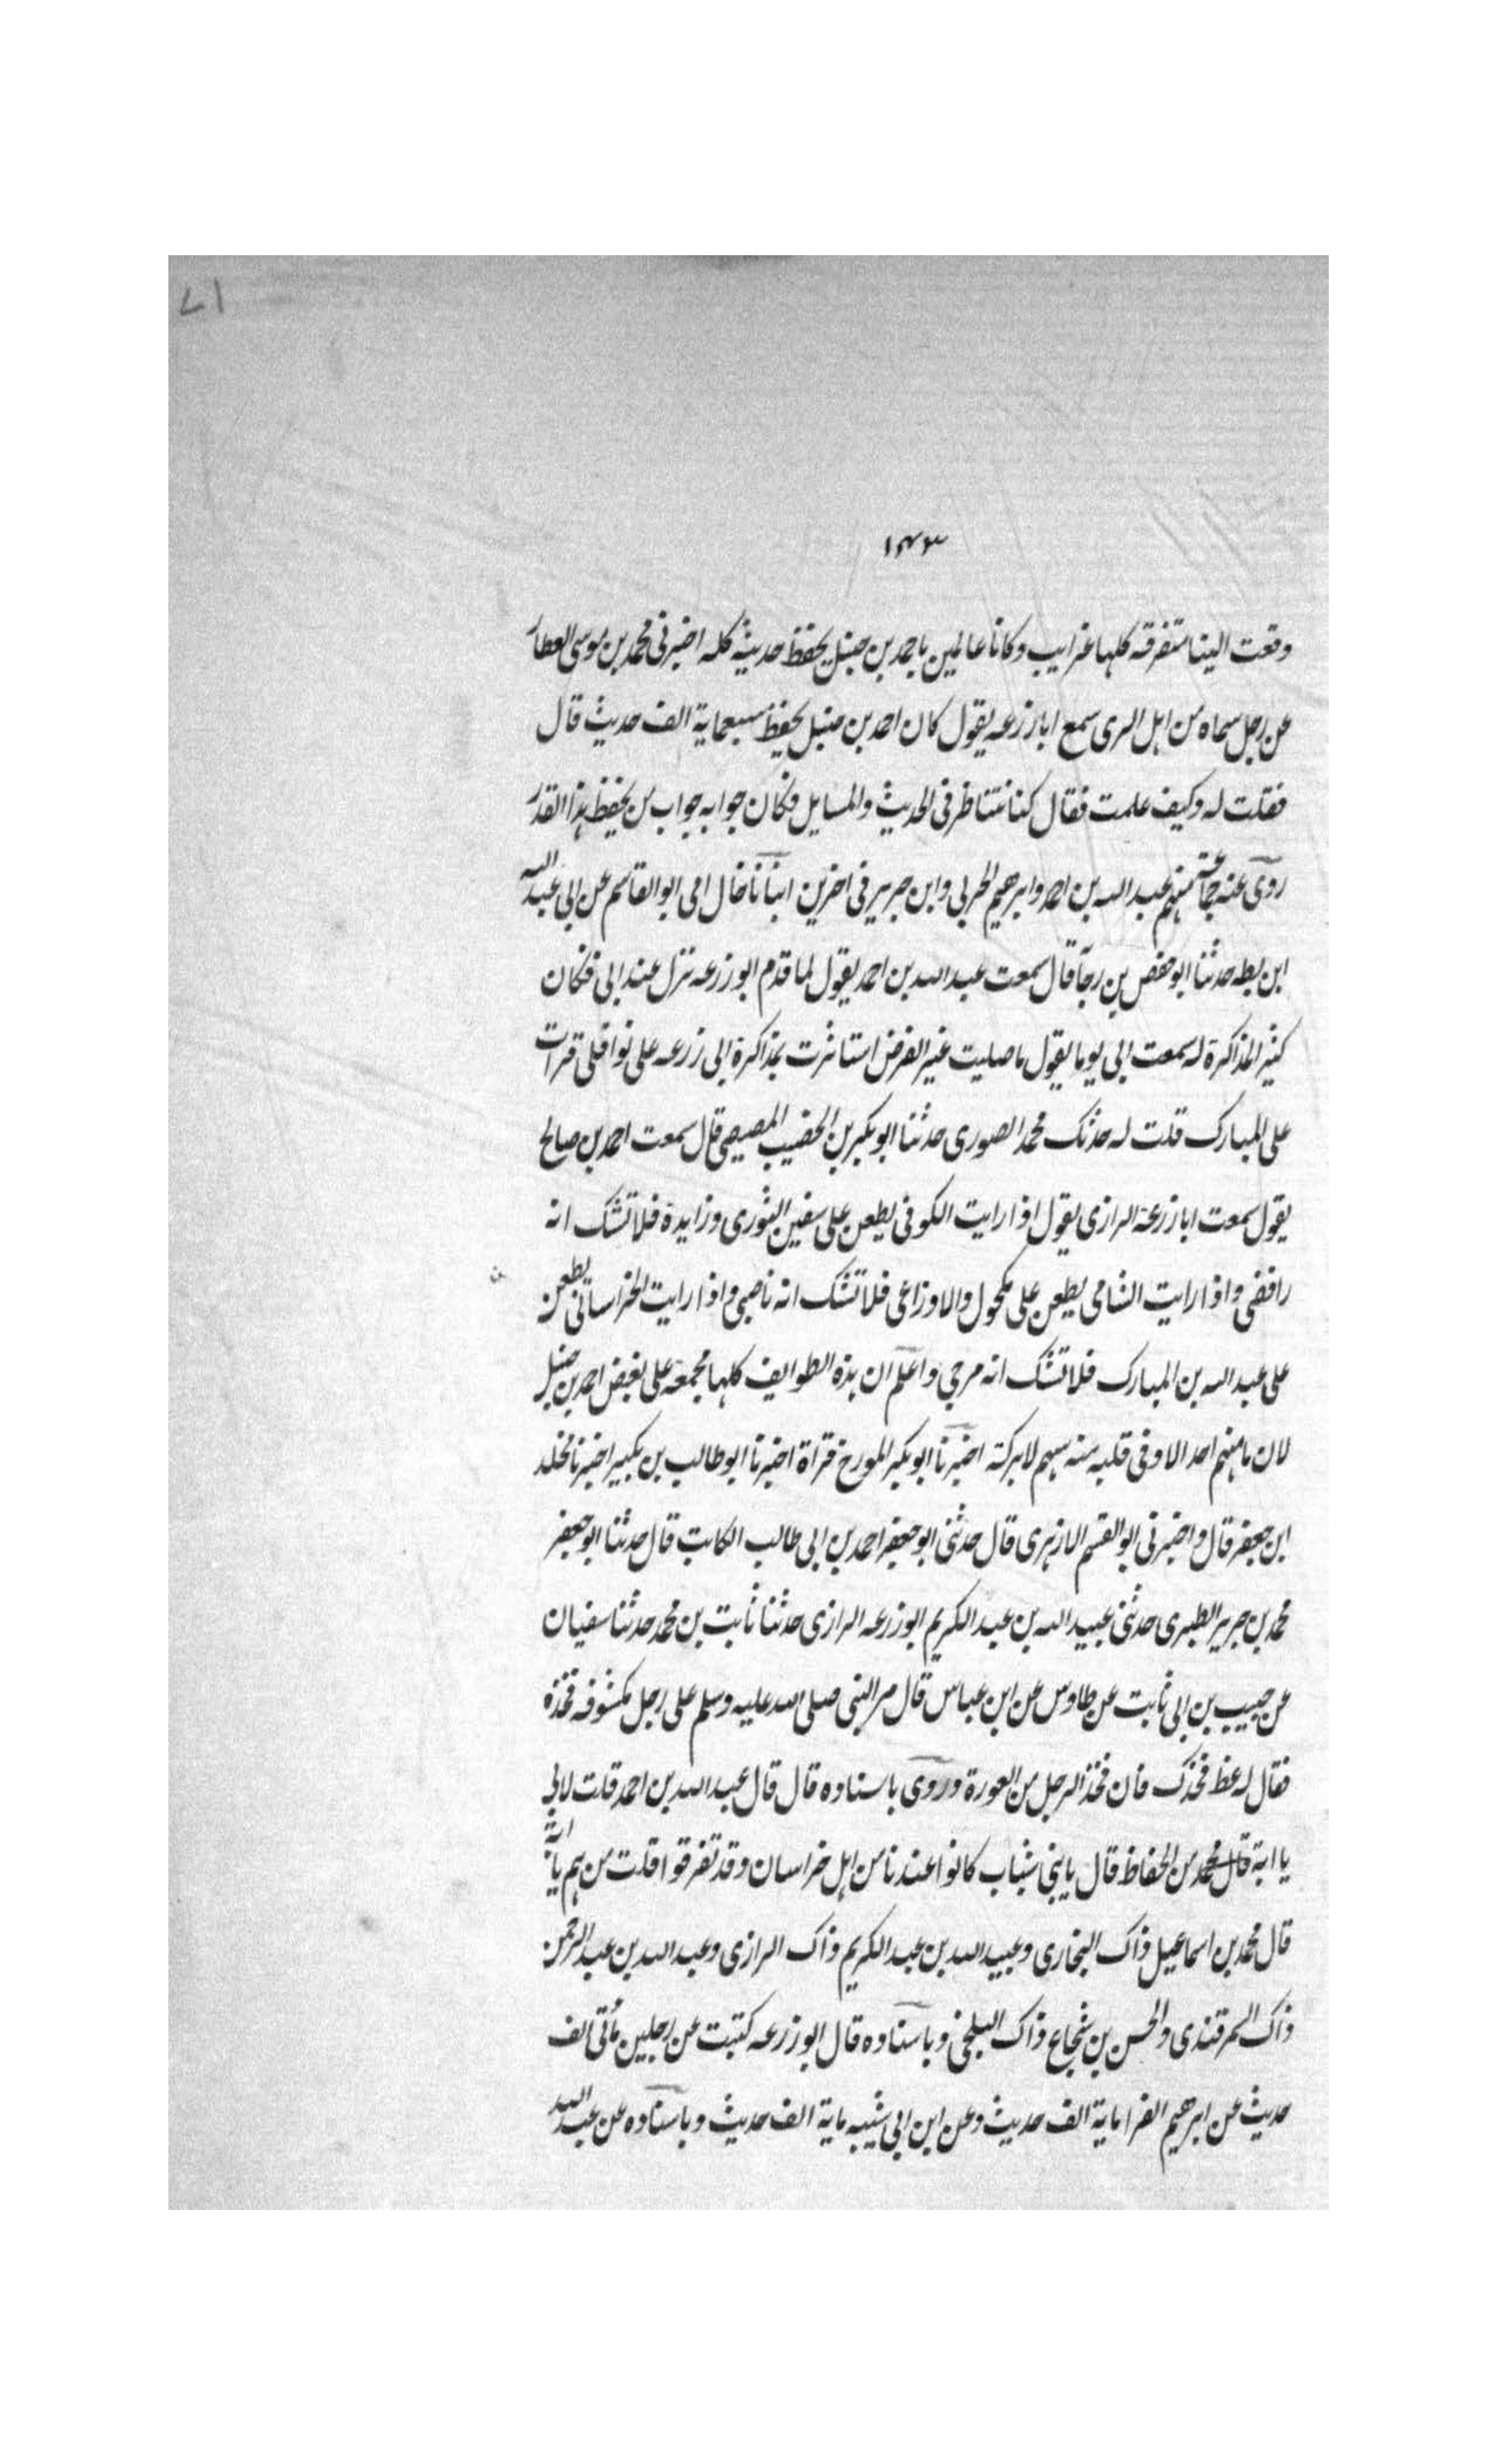 ۷۱
۱۴۳
وقعت الينا متفرقه كلها غرايب وكانا عالمين باحمد بن حنبل يحفظ حديثه كله اخبرنى محمد بن موسى العطار
عن رجل سماه من اهل الرى سمع ابا زرعه يقول كان احمد بن حنبل يحفظ سبعماية الف حديث قال
فقلت له وكيف علمت فقال كنا نتناظر فى الحديث والمسايل فكان جوابه جواب من يحفظ هذا القدر
روى عنه جماعة منهم عبد الله بن احمد وابرهيم الحربى وابن جرير فى اخرين انبانا خال امى ابو القاسم عن ابى عبد الله
ابن بطه حدثنا ابو حفص بن رجآ قال سمعت عبد الله بن احمد يقول لما قدم ابو زرعه نزل عند ابى فكان
كثير المذاكرة له سمعت ابى يوما يقول ما صليت غير الفرض استاثرت بمذاكرة ابى زرعه على نوافلى قرات
على المبارك قلت له حدثك محمد الصورى حدثنا ابو بكير بن الخصيب المصيصى قال سمعت احمد بن صالح
يقول سمعت ابا زرعة الرازى يقول اذا رايت الكوفى يطعن على سفين الثورى وزايدة فلا تشك انه
رافضى واذا رايت الشامى يطعن على مكحول والاوزاعى فلا تشك انه ناصبى واذا رايت الخراسانى يطعن
على عبد الله بن المبارك فلا تشك انه مرجي واعلم ان هذه الطوايف كلها مجمعة على بغض احمد بن حنبل
لان ما منهم احد الا وفى قلبه منه سهم لا بركة اخبرنا ابو بكير المورخ قراة اخبرنا ابو طالب بن بكير اخبرنا مخلد
ابن جعفر قال واخبرنى ابو القسم الازهرى قال حدثنى ابو جعفر احمد بن ابى طالب الكاتب قال حدثنا ابو جعفر
محمد بن جرير الطبرى حدثنى عبيد الله بن عبد الكريم ابو زرعه الرازى حدثنا ثابت بن محمد حدثنا سفيان
عن حبيب بن ابى ثابت عن طاوس عن ابن عباس قال مر النبى صلى الله عليه وسلم على رجل مكشوفه فخذه
فقال له غط فخذك فان فخذ الرجل من العورة وروى باسناده قال قال عبد الله بن احمد قلت لابى
يا ابة من الحفاظ قال يا بنى شباب كانوا عندنا من اهل خراسان وقد تفرقوا قلت من هم يا ابة
قال محمد بن اسماعيل ذاك البخارى وعبيد الله بن عبد الكريم ذاك الرازى وعبد الله بن عبد الرحمن
ذاك السمرقندى والحسن بن شجاع ذاك البلخى وباسناده قال ابو زرعه كتبت عن رجلين مأتى الف
حديث عن ابرهيم الفرا ماية الف حديث وعن ابن ابى شيبه ماية الف حديث وباسناده عن عبد الله